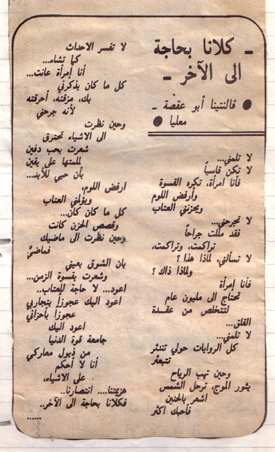 ـ كلانا بحاجة
الى الآخر ـ
● ڤالنتينا أبو عقصة ـ
معليا ●
لا تلمني..
لا تكن قاسياً
فأنا امرأة، تكره القسوة
وأرفض اللوم
ويحزنني العتاب
لا تجرحني..
فقد مللت جراحاً
تراكمت، وتراكمت،
لا تسألني، لماذا هذا ؟
ولماذا ذاك ؟
فأنا امرأة
تحتاج الى مليون عام
لتتخلص من عقدة
القلق...
لا تلمني..
كل الروايات حولي تندثر
تتبعثر
وحين تهب الرياح
يثور الموج، ترحل الشمس
اشعر بالحنين
فأحبك اكثر
لا تفسر الاحداث
كما تشاء...
أنا إمرأة عانت...
كل ما كان يذكرني
بك، مزقته، أحرقته
لأنه جرحني
وحين نظرت
الى الاشياء تحترق
شعرت بحب دفين
للمتها على يقين
بأن حبي للأبد...
ارفض اللوم،
ويؤلمني العتاب
كل ما كان كان...
وقصص الحزن كانت
وحين نظرت الى ماضيك
فماضيَّ
بان الشوق بعيني
وشعرت بقسوة الزمن...
اعود... لا حاجة للعتاب..
اعود اليك عجوزاً بتجاربي
عجوزاً بأحزاني
اعود اليك
جامعة قوة الدنيا
من ذيول معاركي
أنا لا أحكم
على الأشياء،
هزيمتنا... انتصارنا..
فكلانا بحاجة الى الآخر..